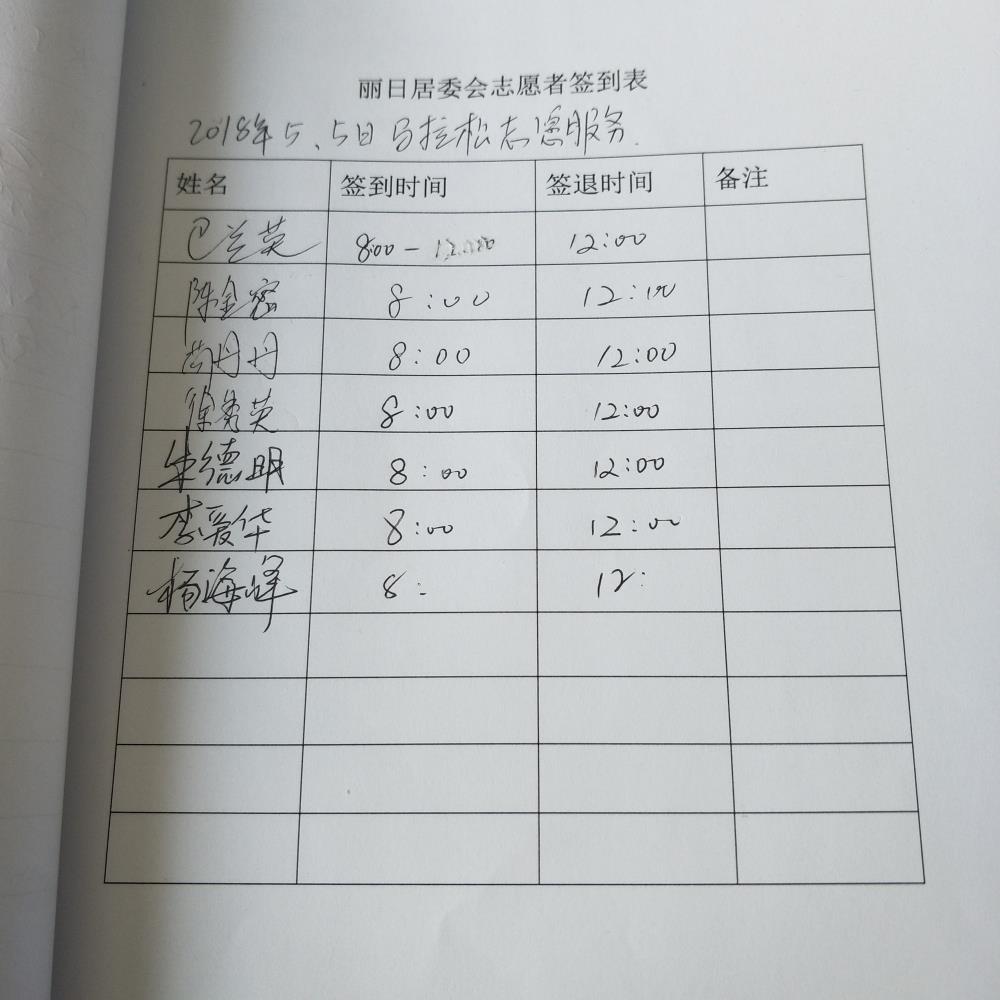 丽日居委会志愿者签到表
2018年5、5日马拉松志愿服务.
姓名 签到时间 签退时间 备注
巴兰英 8:00 - 12:00 12:00
陈金密 8:00 12:00
尚丹丹 8:00 12:00
徐秀英 8:00 12:00
朱德明 8:00 12:00
李爱华 8:00 12:00
杨海峰 8: 12: